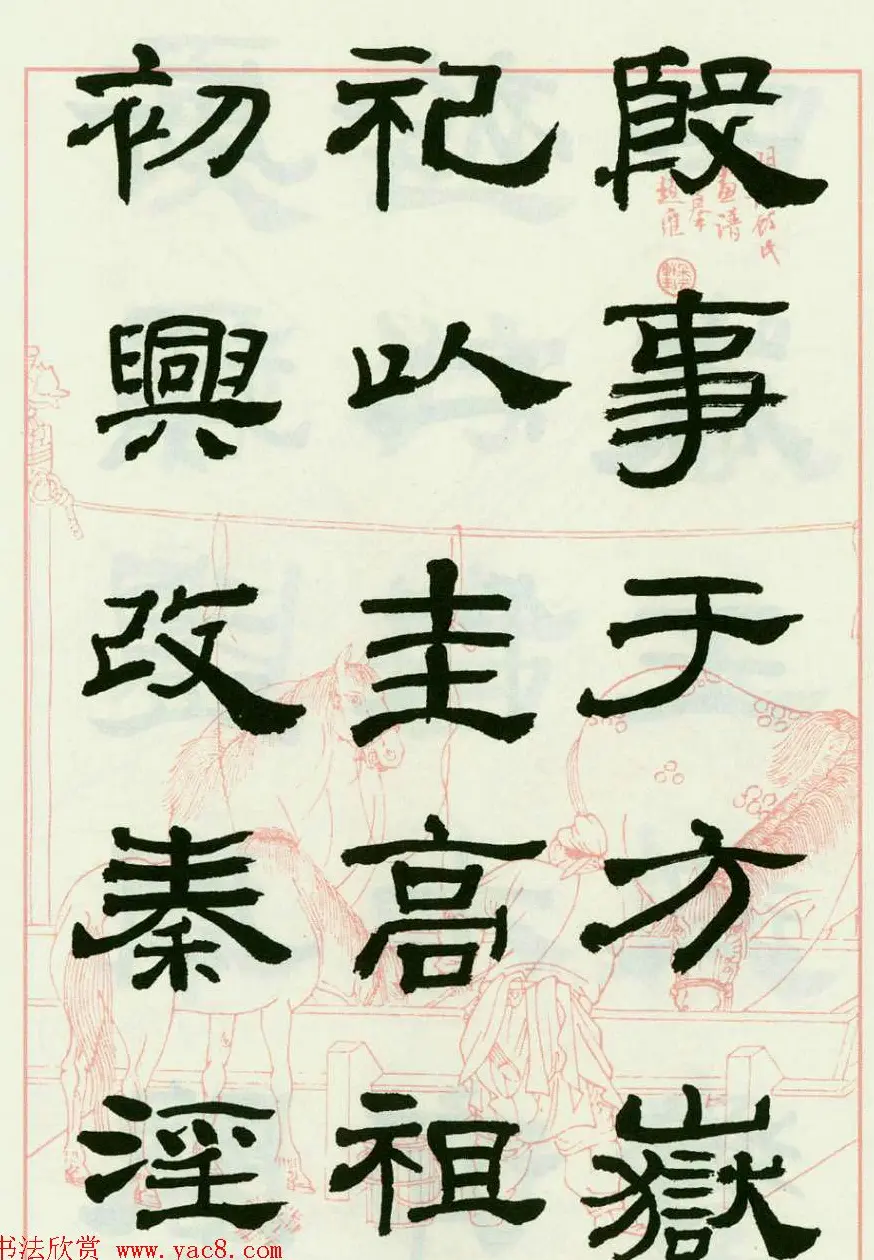 殷事于方嶽
祀以圭高祖
初興改秦淫
畫譜
趙雍
书法欣赏 www.yac8.com